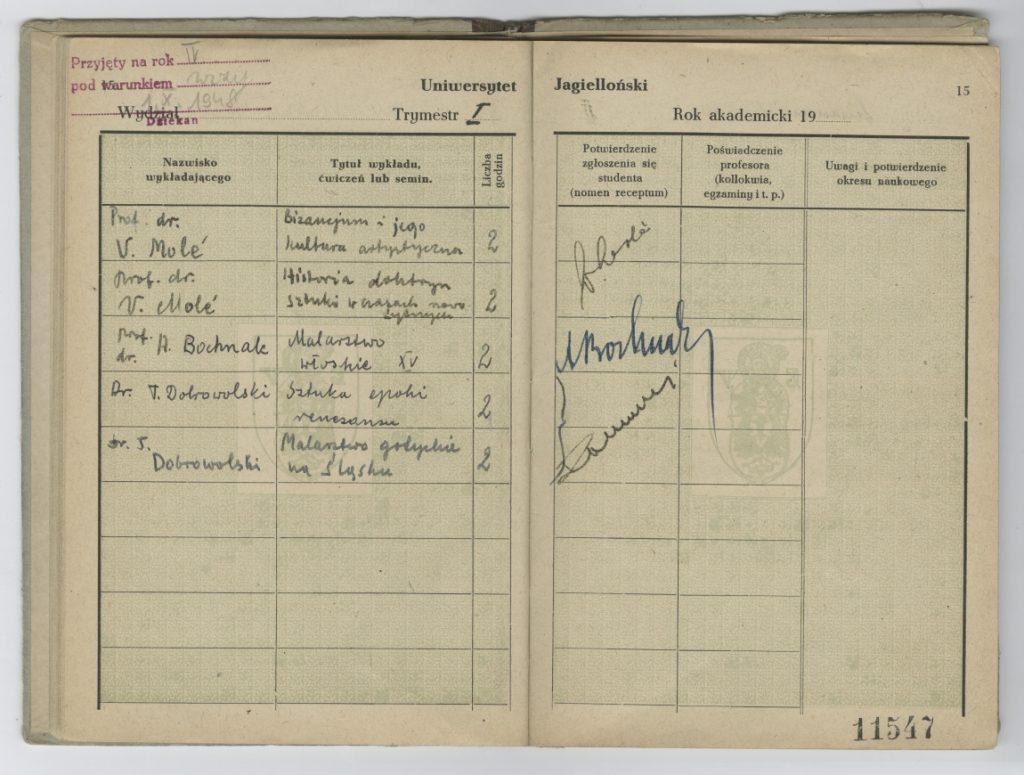 Przyjęty na rok IV
pod warunkiem
1.X. 1948
Dziekan
Uniwersytet Jagielloński
15
Wydział
Trymestr I
Rok akademicki 19
Nazwisko wykładającego
Tytuł wykładu, ćwiczeń lub semin.
Liczba godzin
Potwierdzenie zgłoszenia się studenta (nomen receptum)
Poświadczenie profesora (kollokwia, egzaminy i t. p.)
Uwagi i potwierdzenie okresu naukowego
Prof. dr. V. Molé
Bizancjum i jego kultura artystyczna
2
Prof. dr. V. Molé
Historia doktryn sztuki w czasach nowożytnych
2
Prof. dr. A. Bochnak
Malarstwo włoskie XV
2
ABochnak
Dr. T. Dobrowolski
Sztuka epoki renesansu
2
dr. T. Dobrowolski
Malarstwo gotyckie na Śląsku
2
11547